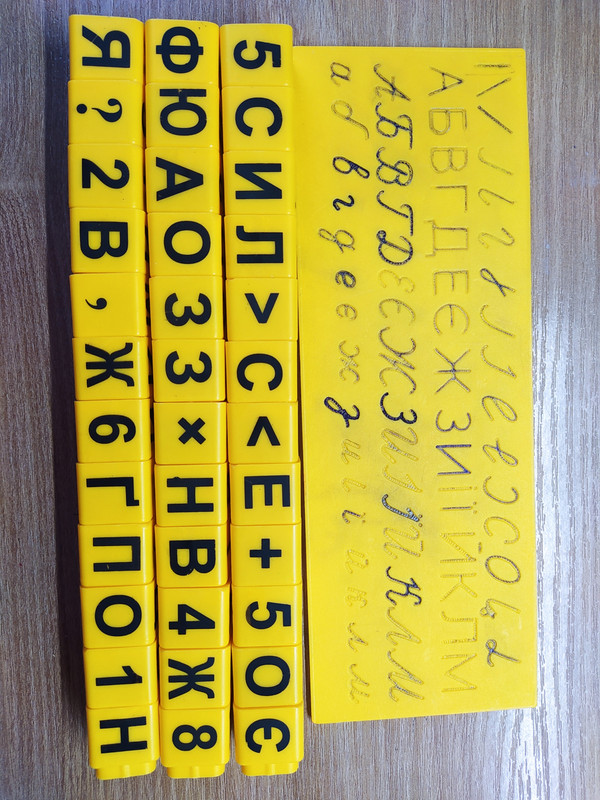 А Б В Г Д Е Є Ж З И І Ї Й К Л М
А Б В Г Д Е Є Ж З И І Ї Й К Л М
а б в г д е є ж з и і ї й к л м
5 С И Л > С < Е + 5 О Є
Ф Ю А О З З × Н В 4 Ж 8
Я ? 2 В , Ж 6 Ґ П О 1 Н